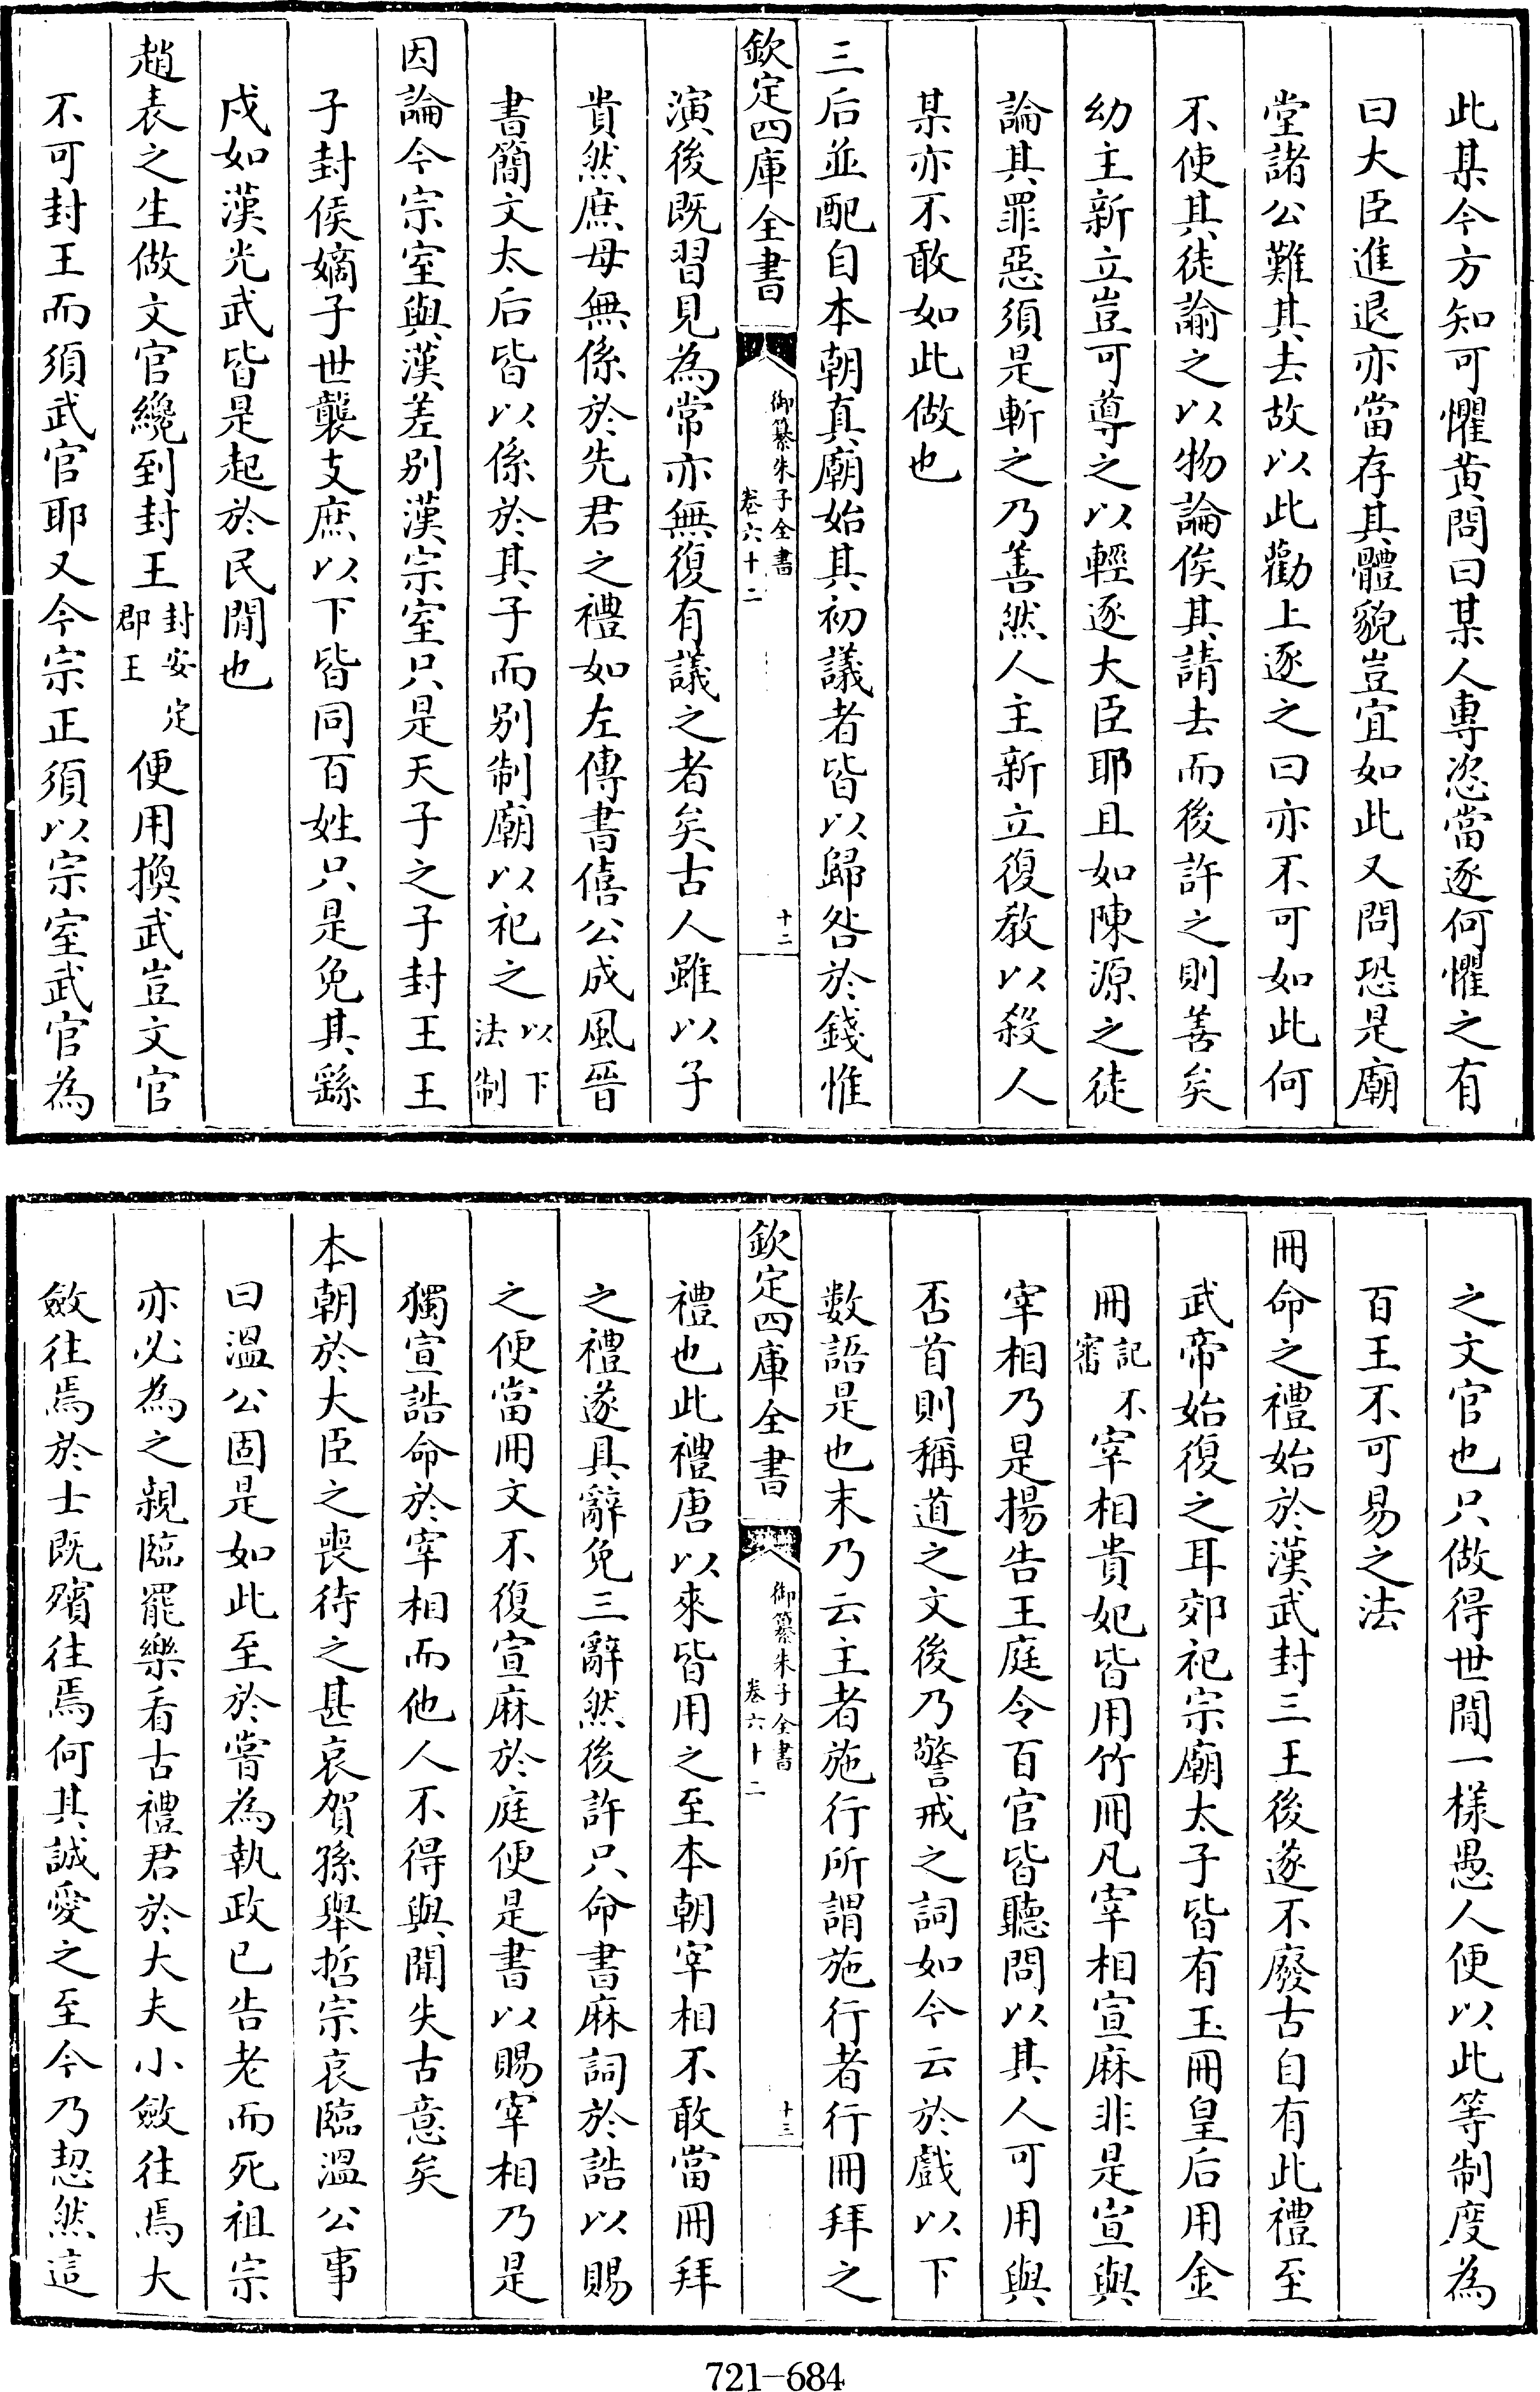 此某今方知可懼黄問曰某人專恣當逐何懼之有
曰大臣進退亦當存其體貌豈宜如此又問恐是廟
堂諸公難其去故以此勸上逐之曰亦不可如此何
不使其徒諭之以物論俟其請去而後許之則善矣
幼主新立豈可導之以輕逐大臣耶且如陳源之徒
論其罪惡須是斬之乃善然人主新立復教以殺人
某亦不敢如此做也
三后並配自本朝真廟始其初議者皆以歸咎於錢惟
欽定四庫全書
御纂朱子全書
卷六十二
十二
演後既習見為常亦無復有議之者矣古人雖以子
貴然庶母無係於先君之禮如左傳書僖公成風晉
書簡文太后皆以係於其子而别制廟以祀之以下法制
因論今宗室與漢差别漢宗室只是天子之子封王王
子封侯嫡子世襲支庶以下皆同百姓只是免其繇
戍如漢光武皆是起於民閒也
趙表之生做文官纔到封王封安定郡王便用換武豈文官
不可封王而須武官耶又今宗正須以宗室武官為
之文官也只做得世閒一樣愚人便以此等制度為
百王不可易之法
冊命之禮始於漢武封三王後遂不廢古自有此禮至
武帝始復之耳郊祀宗廟太子皆有玉冊皇后用金
冊記不審宰相貴妃皆用竹冊凡宰相宣麻非是宣與
宰相乃是揚告王庭令百官皆聽問以其人可用與
否首則稱道之文後乃警戒之詞如今云於戲以下
數語是也末乃云主者施行所謂施行者行冊拜之
欽定四庫全書
御纂朱子全書
卷六十二
十三
禮也此禮唐以來皆用之至本朝宰相不敢當冊拜
之禮遂具辭免三辭然後許只命書麻詞於誥以賜
之便當冊文不復宣麻於庭便是書以賜宰相乃是
獨宣誥命於宰相而他人不得與聞失古意矣
本朝於大臣之喪待之甚哀賀孫舉哲宗哀臨溫公事
曰溫公固是如此至於嘗為執政已告老而死祖宗
亦必為之親臨罷樂看古禮君於大夫小斂往焉大
斂往焉於士既殯往焉何其誠愛之至今乃恝然這
721-684